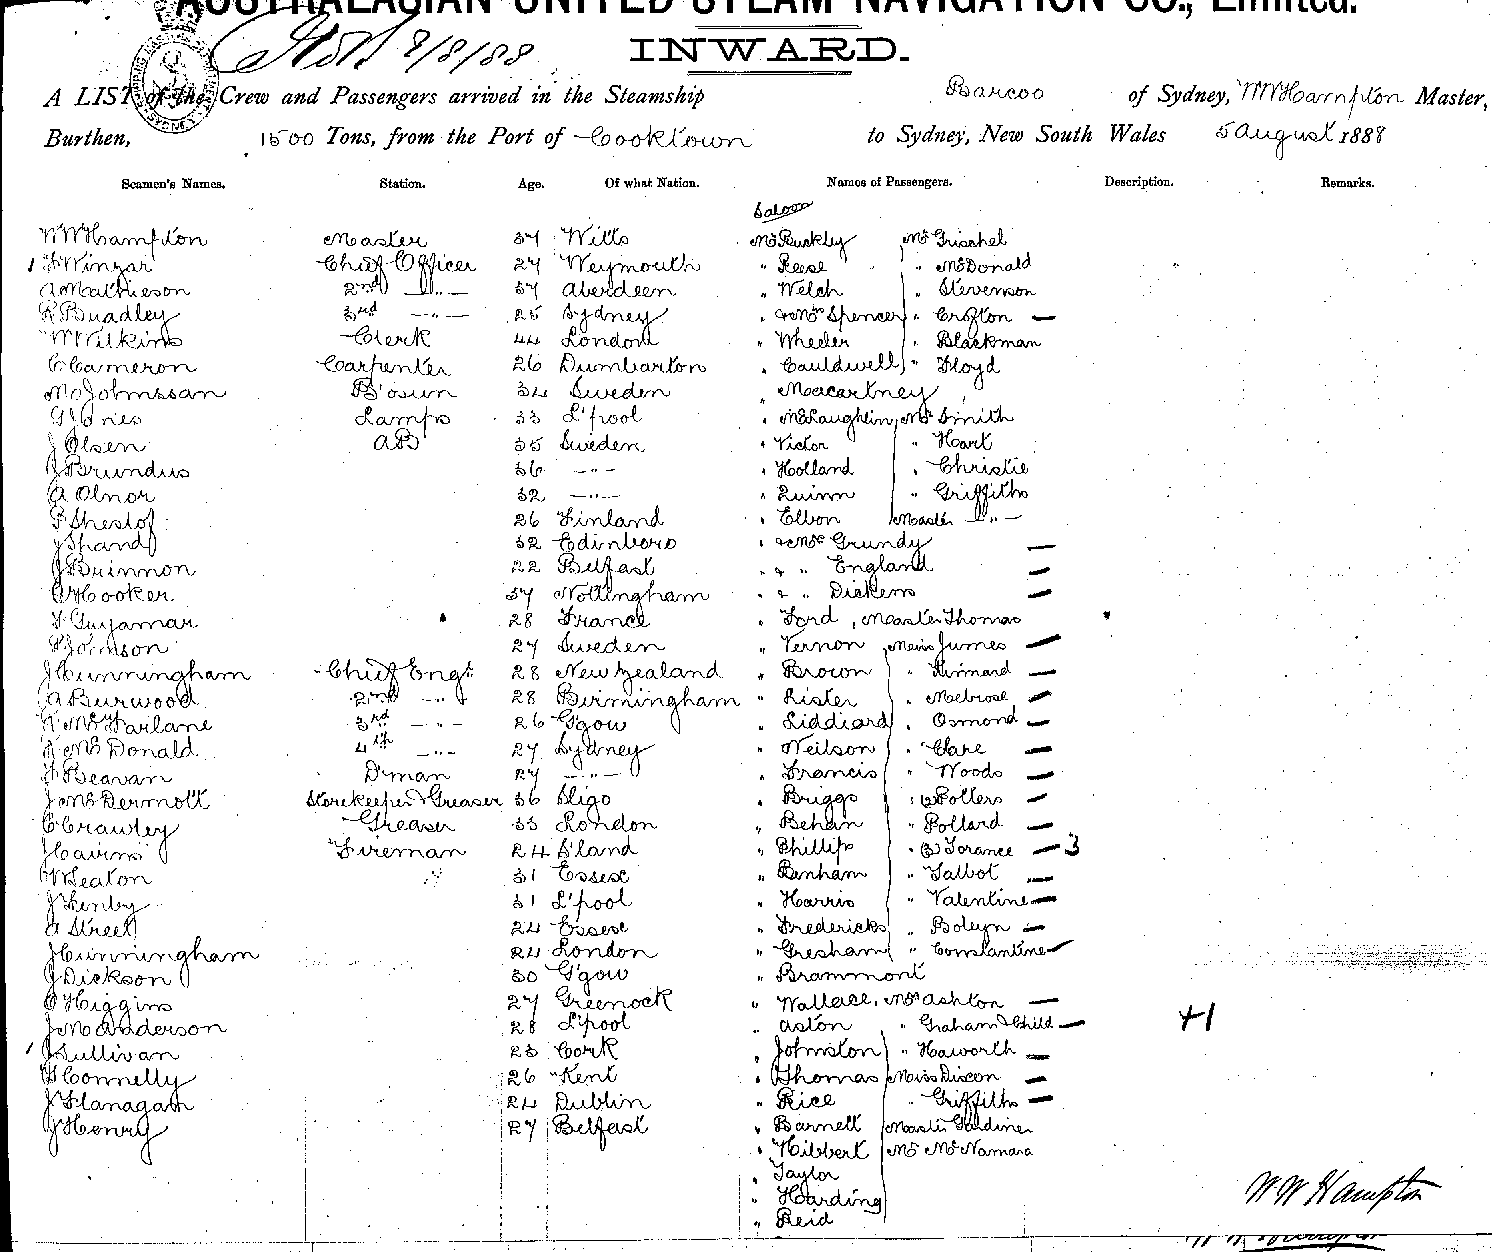 AUSTRALASIAN UNITED STEAM NAVIGATION CO., Limited.
8/8/88
INWARD.
A LIST of the Crew and Passengers arrived in the Steamship Barcoo of Sydney, WWHampton Master,
Burthen, 1500 Tons, from the Port of Cooktown to Sydney, New South Wales 5 August 1888
Seamen's Names. Station. Age. Of what Nation. Names of Passengers. Description. Remarks.
Saloon
WWHampton Master 37 Wilts Mr Buckly Mr Grischel
Winzar Chief Officer 27 Weymouth " Reese " McDonald
A Mathieson 2nd —"— 37 Aberdeen " Welch " Stevenson
R Bradley 3rd —"— 25 Sydney " & Mrs Spencer " Crofton —
W Wilkins Clerk 44 London " Wheeler " Blackman
C Cameron Carpenter 26 Dumbarton " Cauldwell " Floyd
M Johnssan B'osun 34 Sweden " Macartney
G Jones Lamps 33 L'pool " McLaughlin, Mrs Smith
J Olsen AB 35 Sweden " Victor " Hart
J Brundus 36 —"— " Holland " Christie
A Olnor 32 —"— " Quinn " Griffiths
P Shestof 26 Finland " Elbon Master —"—
J Shand 32 Edinboro " & Mrs Grundy —
J Brinnon 22 Belfast " & " England —
A Hooker 37 Nottingham " & " Dickens —
F Guyamar 28 France " Ford, Master Thomas
Johnson 27 Sweden " Vernon, Miss James —
J Cunningham Chief Engr 28 New Zealand " Brown " Kinnard —
A Burwood 2nd —"— 28 Birmingham " Lister " Melrose —
McFarlane 3rd —"— 26 G'gow " Liddiard " Osmond —
McDonald 4th —"— 27 Sydney " Neilson " Clare —
Beavan D'man 27 —"— " Francis " Woods —
J McDermott Storekeeper & Greaser 36 Sligo " Briggs " Potters —
C Crawley Greaser 33 London " Behan " Pollard —
J Cairns Fireman 24 S'land " Phillips " Torance — 3
W Seaton " 31 Essex " Benham " Talbot —
J Henley 31 L'pool " Harris " Valentine —
A Street 24 Essex " Fredericks " Boleyn —
J Cunningham 24 London " Gresham " Constantine —
J Dickson 30 G'gow " Brammont
Higgins 27 Greenock " Wallace, Mrs Ashton —
J McAnderson 28 L'pool " Aston " Graham & Child — +1
J Sullivan 23 Cork " Johnston " Haworth —
Connelly 26 Kent " Thomas Miss Dixon —
J Flanagan 24 Dublin " Rice " Griffiths —
J Henry 27 Belfast " Barnett Master Gardiner
" Hibbert Mr McNamara
" Taylor
" Harding
" Reid
WW Hampton